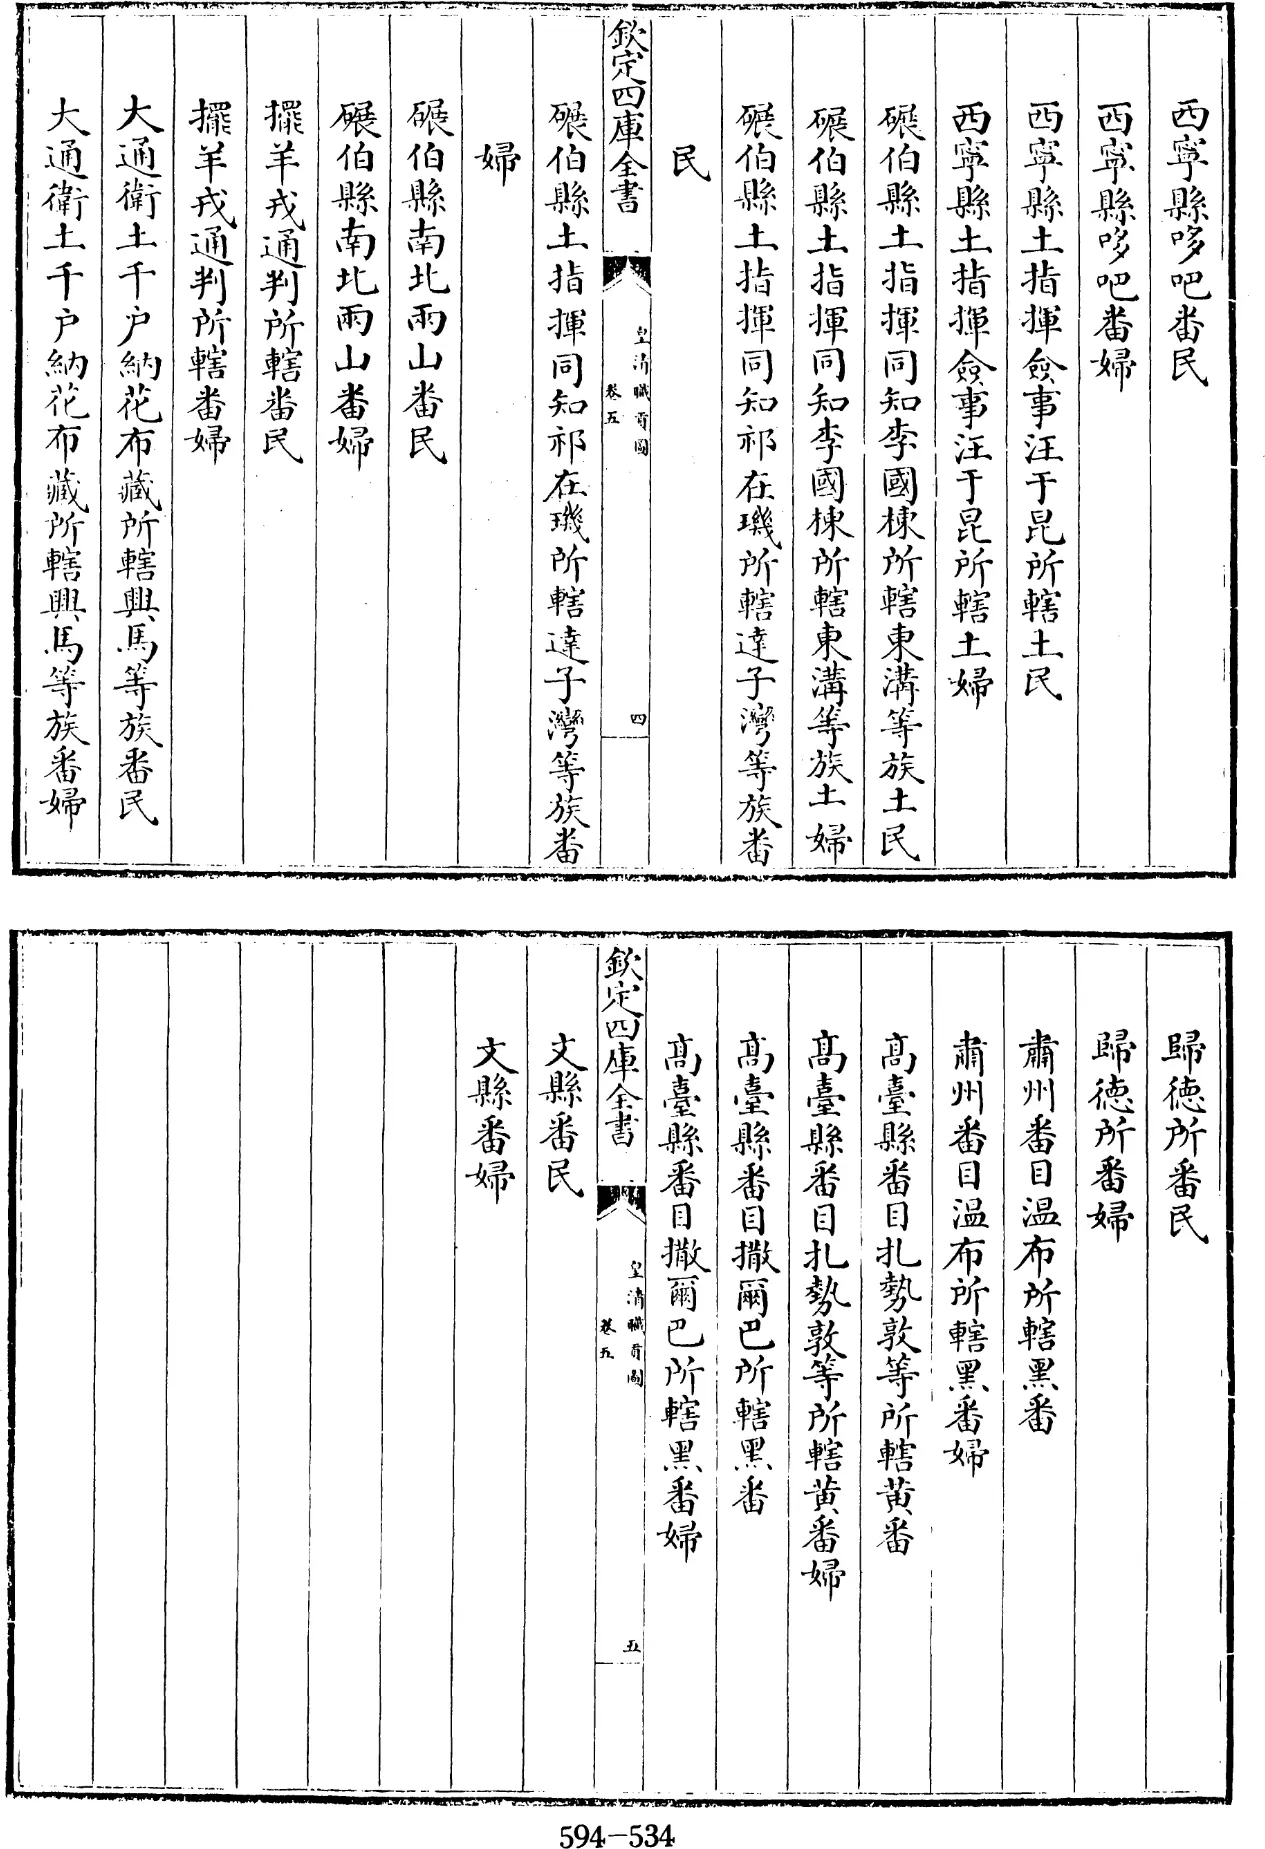 西寧縣哆吧番民
西寧縣哆吧番婦
西寧縣土指揮僉事汪于昆所轄土民
西寧縣土指揮僉事汪于昆所轄土婦
碾伯縣土指揮同知李國棟所轄東溝等族土民
碾伯縣土指揮同知李國棟所轄東溝等族土婦
碾伯縣土指揮同知祁在璣所轄達子灣等族番
民
欽定四庫全書
皇清職貢圖
卷五
四
碾伯縣土指揮同知祁在璣所轄達子灣等族番
婦
碾伯縣南北兩山番民
碾伯縣南北兩山番婦
擺羊戎通判所轄番民
擺羊戎通判所轄番婦
大通衛土千户納花布藏所轄興馬等族番民
大通衛土千户納花布藏所轄興馬等族番婦
歸徳所番民
歸徳所番婦
肅州番目温布所轄黑番
肅州番目温布所轄黑番婦
髙臺縣番目扎勢敦等所轄黄番
髙臺縣番目扎勢敦等所轄黄番婦
髙臺縣番目撒爾巴所轄黑番
髙臺縣番目撒爾巴所轄黑番婦
欽定四庫全書
皇清職貢圖
卷五
五
文縣番民
文縣番婦
594-534